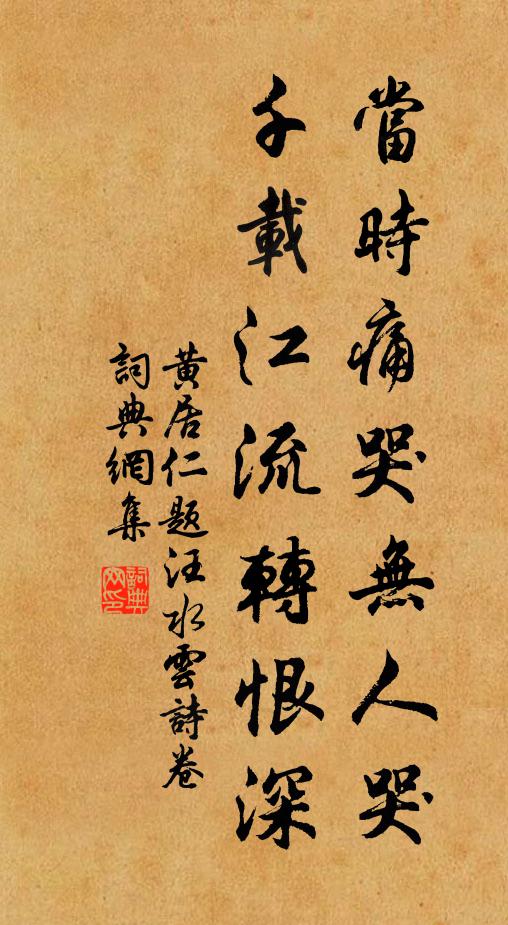 當時痛哭無人哭
千載江流轉恨深
黄居仁题汪水雲詩卷
詞典網集
詞典網印